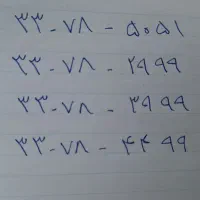 ۳۳-۷۸-۵۰۵۱
۳۳-۷۸-۲۹۹۹
۳۳-۷۸-۳۹۹۹
۳۳-۷۸-۴۴۹۹